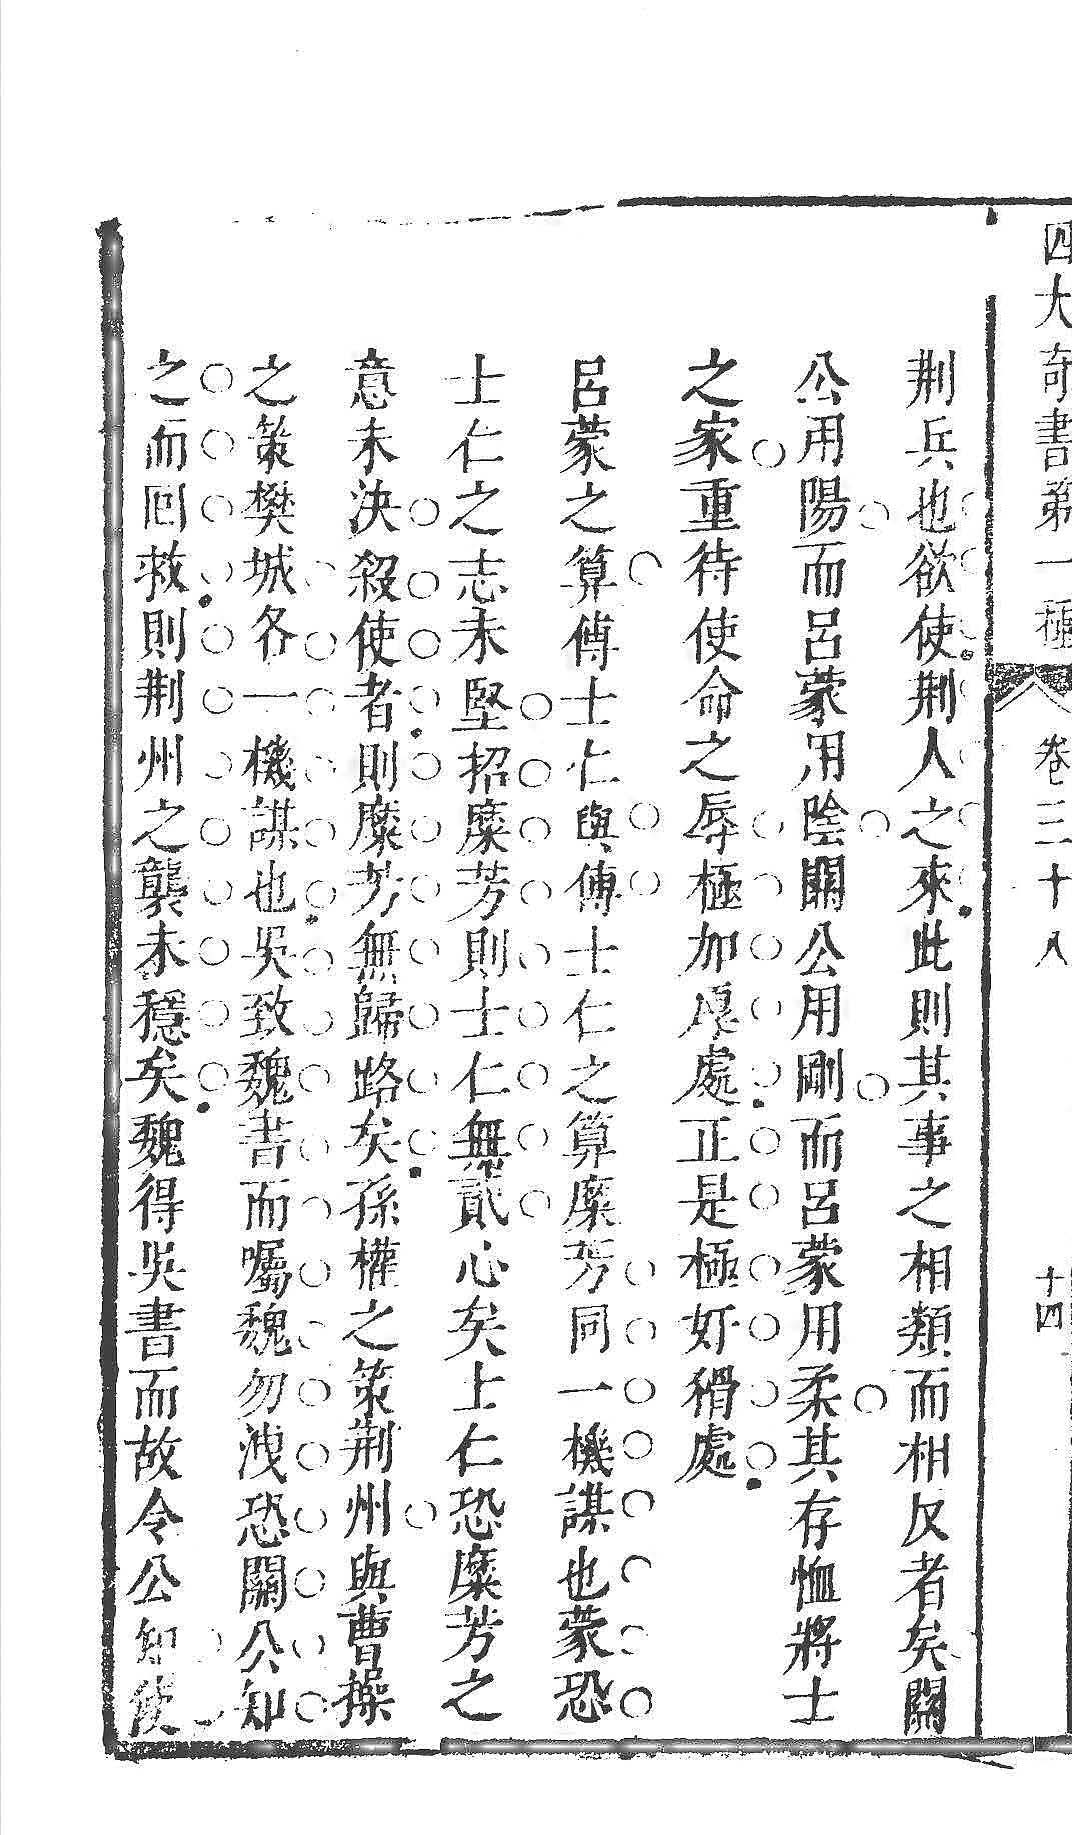 四大奇書第一種 卷三十八 十四
荆兵也欲使荆人之來此則其事之相類而相反者矣關
公用陽而呂蒙用陰關公用剛而呂蒙用柔其存恤將士
之家重待使命之辱極加厚處正是極奸猾處
呂蒙之算傅士仁與傅士仁之算糜芳同一機謀也蒙恐
士仁之志未堅招糜芳則士仁無貳心矣士仁恐糜芳之
意未決殺使者則糜芳無歸路矣孫權之策荆州與曹操
之策樊城各一機謀也吳致魏書而囑魏勿洩恐關公知
之而回救則荆州之襲未穩矣魏得吳書而故令公知使